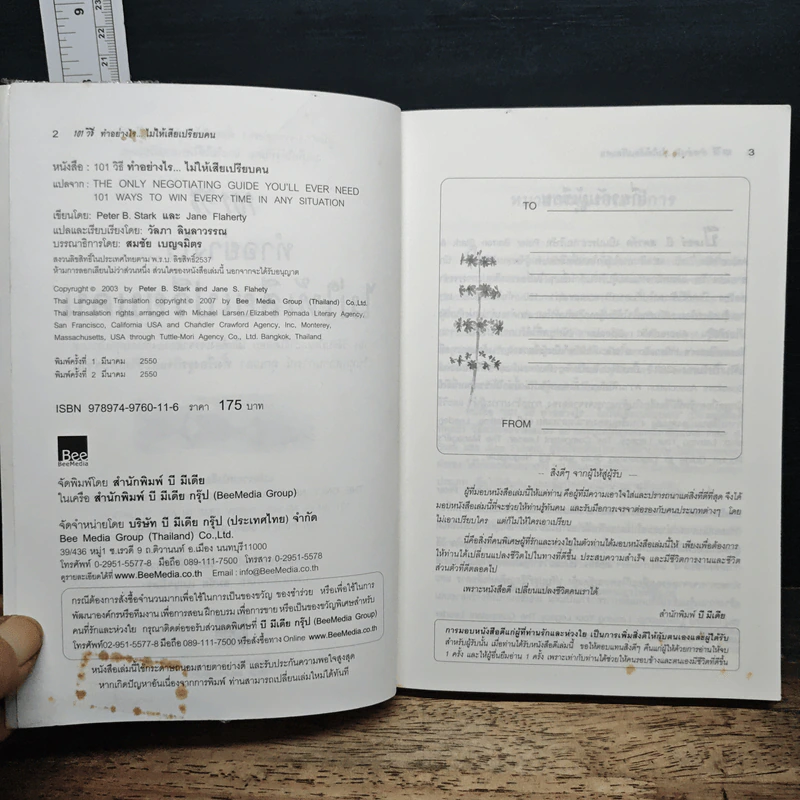 9
23
22
21
2 101 วิธี ทำอย่างไร... ไม่ให้เสียเปรียบคน
หนังสือ : 101 วิธี ทำอย่างไร... ไม่ให้เสียเปรียบคน
แปลจาก : THE ONLY NEGOTIATING GUIDE YOU'LL EVER NEED
101 WAYS TO WIN EVERY TIME IN ANY SITUATION
เขียนโดย: Peter B. Stark และ Jane Flaherty
แปลและเรียบเรียงโดย: วัลภา ลินลาวรรณ
บรรณาธิการโดย: สมชัย เบญจมิตร
สงวนลิขสิทธิ์ในประเทศไทยตาม พ.ร.บ. ลิขสิทธิ์2537
ห้ามการลอกเลียนไม่ว่าส่วนหนึ่ง ส่วนใดของหนังสือเล่มนี้ นอกจากจะได้รับอนุญาต
Copyrught © 2003 by Peter B. Stark and Jane S. Flahety
Thai Language Translation copyright © 2007 by Bee Media Group (Thailand) Co.,Ltd.
Thai transalation rights arranged with Michael Larsen/Elizabeth Pomada Literary Agency,
San Francisco, California USA and Chahdler Crawford Agency, Inc, Monterey,
Massachusetts, USA through Tuttle-Mori Agency Co., Ltd. Bangkok, Thailand
พิมพ์ครั้งที่ 1 มีนาคม 2550
พิมพ์ครั้งที่ 2 มีนาคม 2550
ISBN 978974-9760-11-6 ราคา 175 บาท
Bee
BeeMedia
จัดพิมพ์โดย สำนักพิมพ์ บี มีเดีย
ในเครือ สำนักพิมพ์ บี มีเดีย กรุ๊ป (BeeMedia Group)
จัดจำหน่ายโดย บริษัท บี มีเดีย กรุ๊ป (ประเทศไทย) จำกัด
Bee Media Group (Thailand) Co.,Ltd.
39/436 หมู่1 ซ.เรวดี 9 ถ.ติวานนท์ อ.เมือง นนทบุรี11000
โทรศัพท์ 0-2951-5577-8 มือถือ 089-111-7500 โทรสาร 0-2951-5578
ดูรายละเอียดได้ที่ www.BeeMedia.co.th Email : info@BeeMedia.co.th
กรณีต้องการสั่งซื้อจำนวนมากเพื่อใช้ในการเป็นของขวัญ ของชำร่วย หรือเพื่อใช้ในการ
พัฒนาองค์กรหรือทีมงาน เพื่อการสอน ฝึกอบรม เพื่อการขาย หรือเป็นของขวัญพิเศษสำหรับ
คนที่รักและห่วงใย กรุณาติดต่อขอรับส่วนลดพิเศษที่ บี มีเดีย กรุ๊ป (BeeMedia Group)
โทรศัพท์02-951-5577-8 มือถือ 089-111-7500 หรือสั่งซื้อทาง Online www.BeeMedia.co.th
หนังสือเล่มนี้ใช้กระดาษถนอมสายตาอย่างดี และรับประกันความพอใจสูงสุด
หากเกิดปัญหาอันเนื่องจากการพิมพ์ ท่านสามารถเปลี่ยนเล่มใหม่ได้ทันที
3
TO
FROM
สิ่งดีๆ จากผู้ให้สู่ผู้รับ
ผู้ที่มอบหนังสือเล่มนี้ให้แด่ท่าน คือผู้ที่มีความเอาใจใส่และปรารถนาแต่สิ่งที่ดีที่สุด จึงได้
มอบหนังสือเล่มนี้ที่จะช่วยให้ท่านรู้ทันคน และรับมือการเจรจาต่อรองกับคนประเภทต่างๆ โดย
ไม่เอาเปรียบใคร แต่ก็ไม่ให้ใครเอาเปรียบ
นี่คือสิ่งที่คนพิเศษผู้ที่รักและห่วงใยในตัวท่านได้มอบหนังสือเล่มนี้ให้ เพียงเพื่อต้องการ
ให้ท่านได้เปลี่ยนแปลงชีวิตไปในทางที่ดีขึ้น ประสบความสำเร็จ และมีชีวิตการงานและชีวิต
ส่วนตัวที่ดีตลอดไป
เพราะหนังสือดี เปลี่ยนแปลงชีวิตคนเราได้
สำนักพิมพ์ บี มีเดีย
การมอบหนังสือดีแก่ผู้ที่ท่านรักและห่วงใย เป็นการเพิ่มสิ่งดีให้กับตนเองและผู้ได้รับ
สำหรับผู้รับนั้น เมื่อท่านได้รับหนังสือเล่มนี้ ขอให้ตอบแทนสิ่งดีๆ คืนแก่ผู้ให้ด้วยการอ่านให้จบ
1 ครั้ง และให้ผู้อื่นยืมอ่าน 1 ครั้ง เพราะเท่ากับท่านได้ช่วยให้คนรอบข้างและตนเองมีชีวิตที่ดีขึ้น